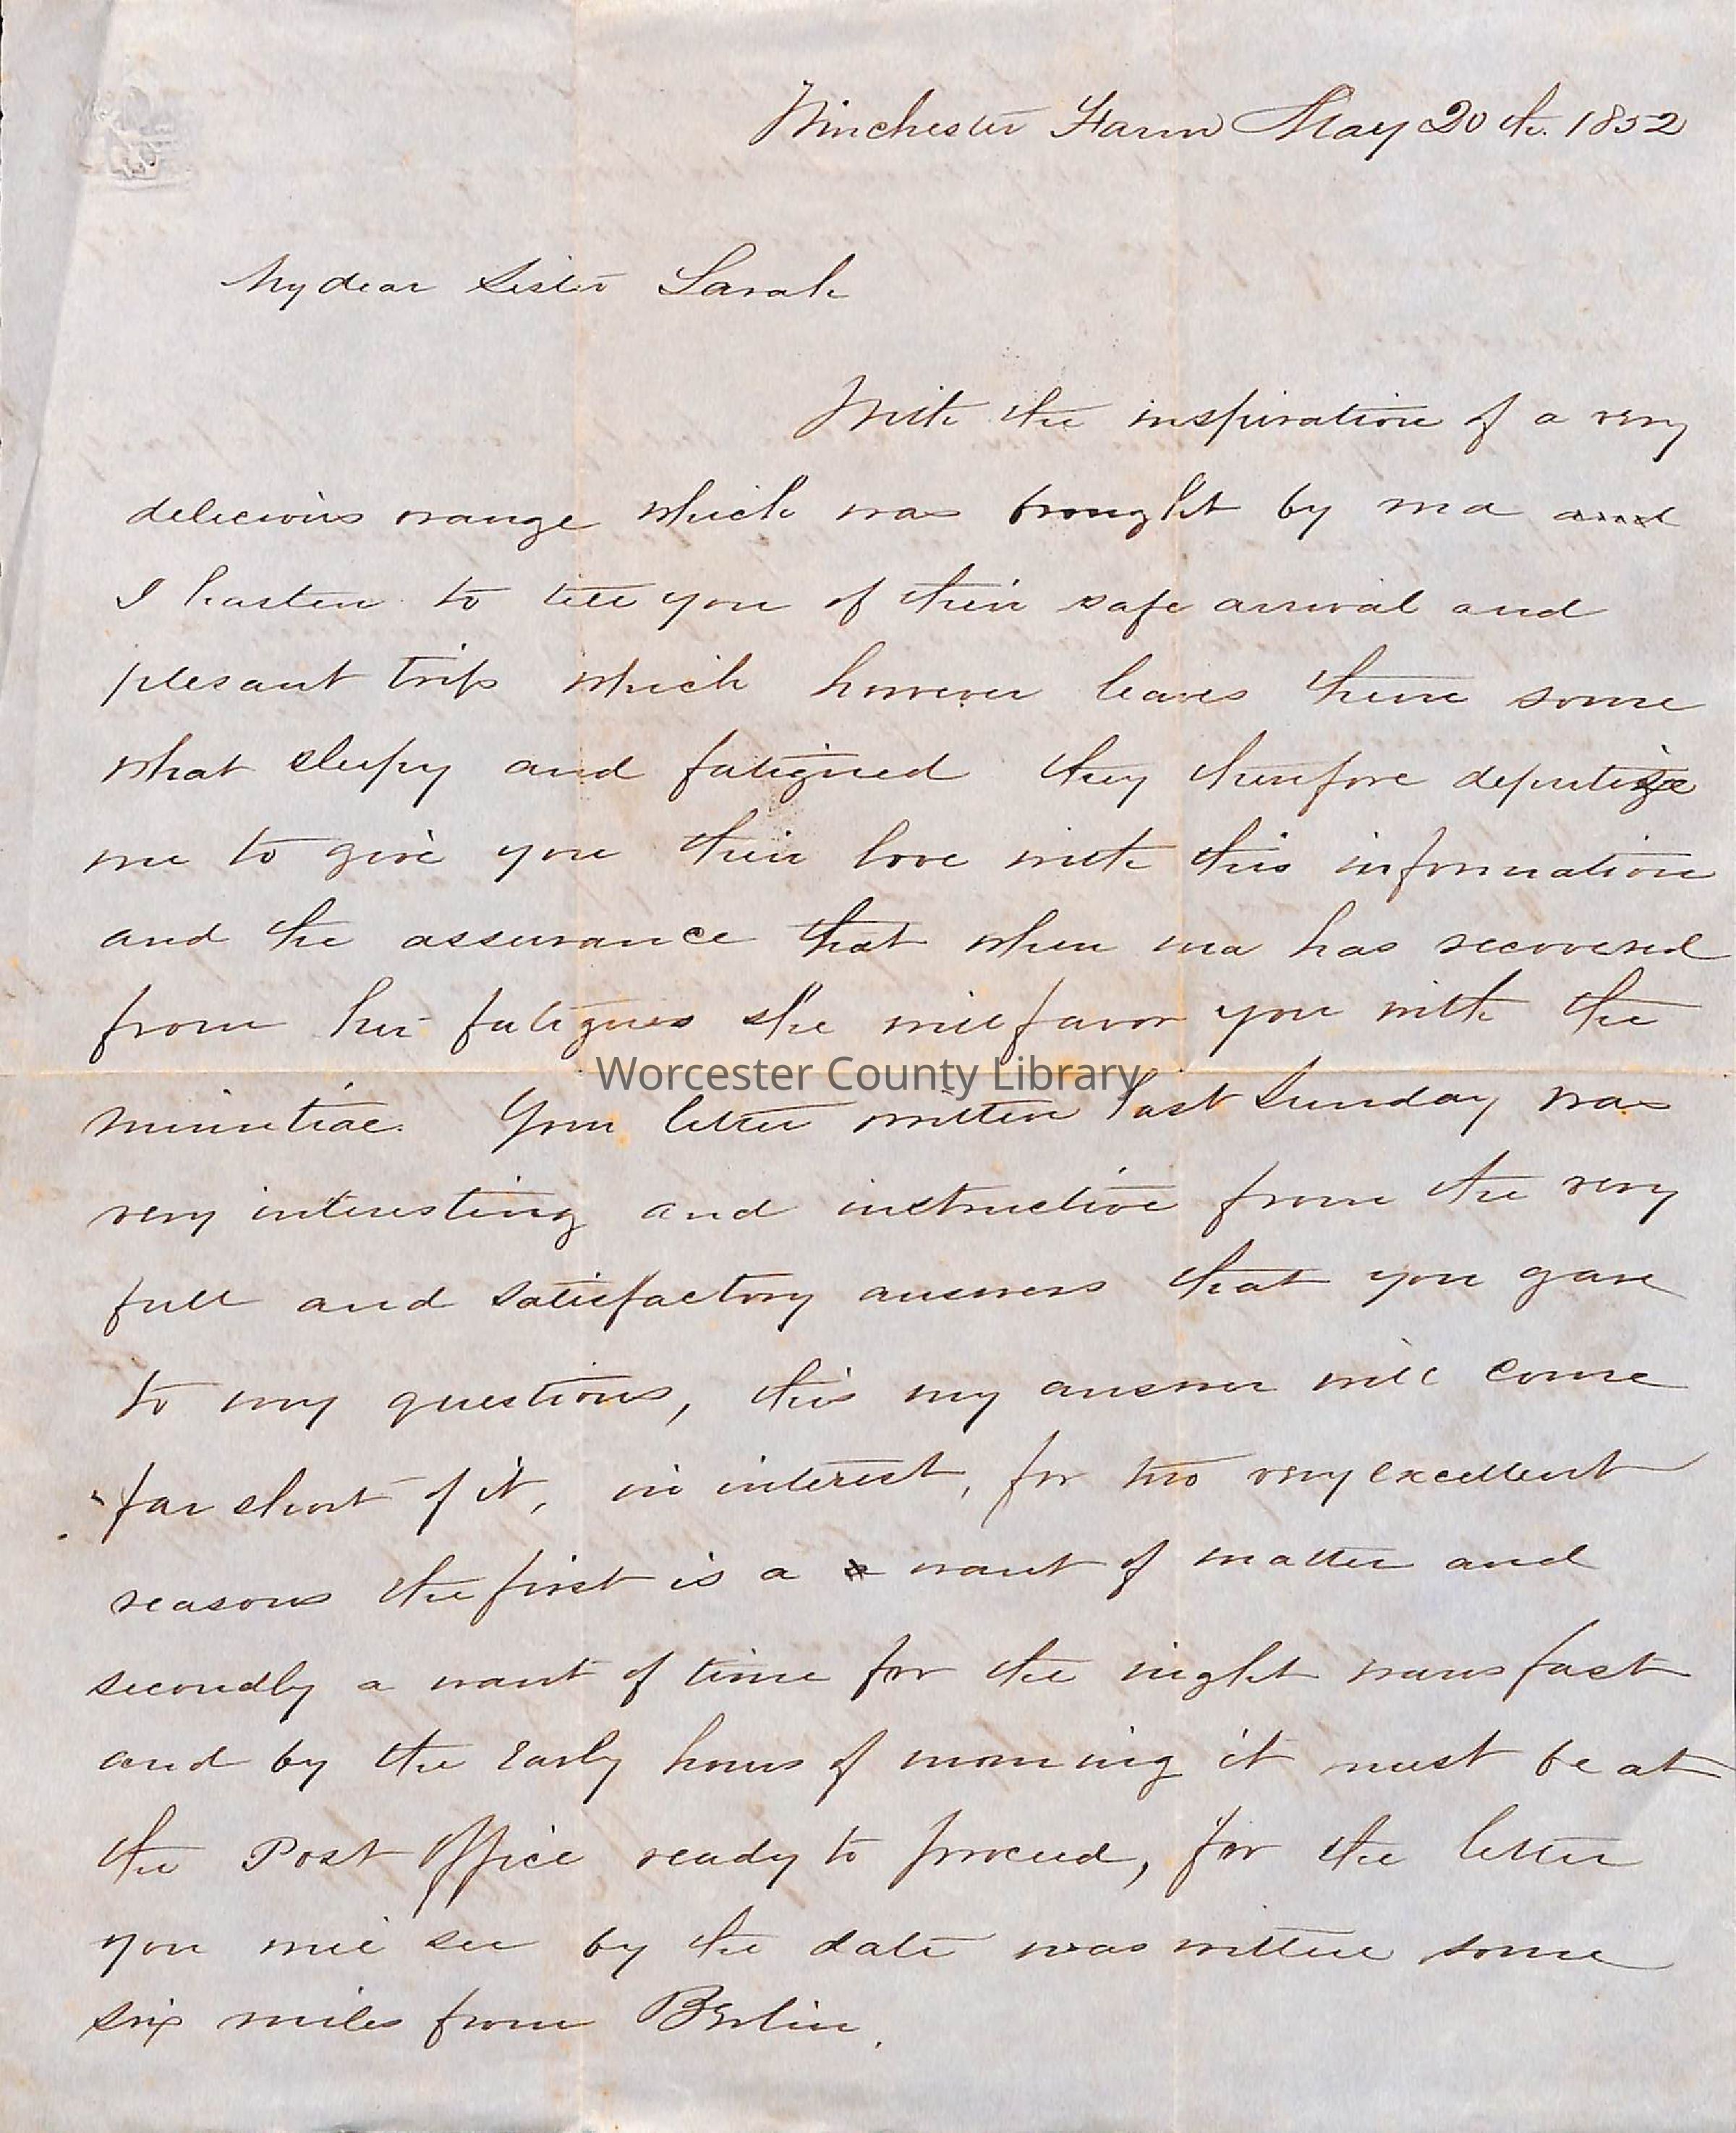 Winchester Farm May 20th. 1852
My dear Sister Sarah
With the inspiration of a very
delicious orange which was brought by ma and
I hasten to tell you of their safe arrival and
plesant trip which however leaves them some
what sleepy and fatigued they therefore deputize
me to give you their love with this information
and the assurance that when ma has recovered
from her fatigues she will favor you with the
Worcester County Library
minutiae. Your letter written last Sunday was
very interesting and instructive from the very
full and satisfactory answers that you gave
to my questions, this my answer will come
far short of it, in interest, for two very excellent
reasons the first is a a want of matter and
secondly a want of time for the night wans fast
and by the early hours of morning it must be at
the Post Office ready to proceed, for the letter
you will see by the date was written some
six miles from Berlin.